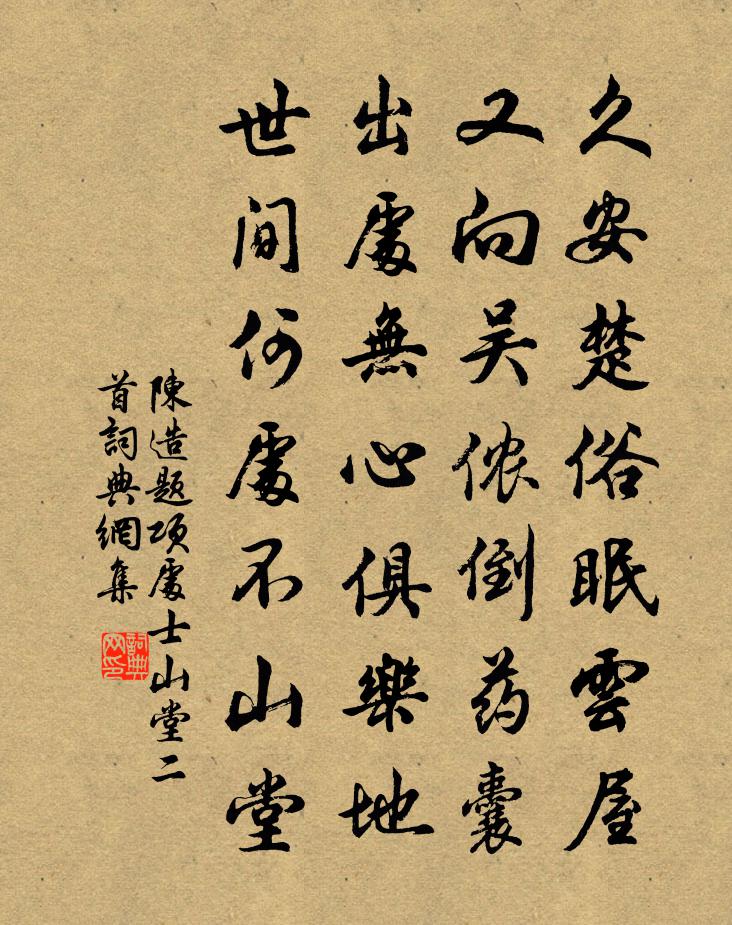 久安楚俗眠雲屋
又向吴侬倒药囊
出處無心俱樂地
世间何處不山堂
陳造题项處士山堂二
首詞典網集
詞典
网印